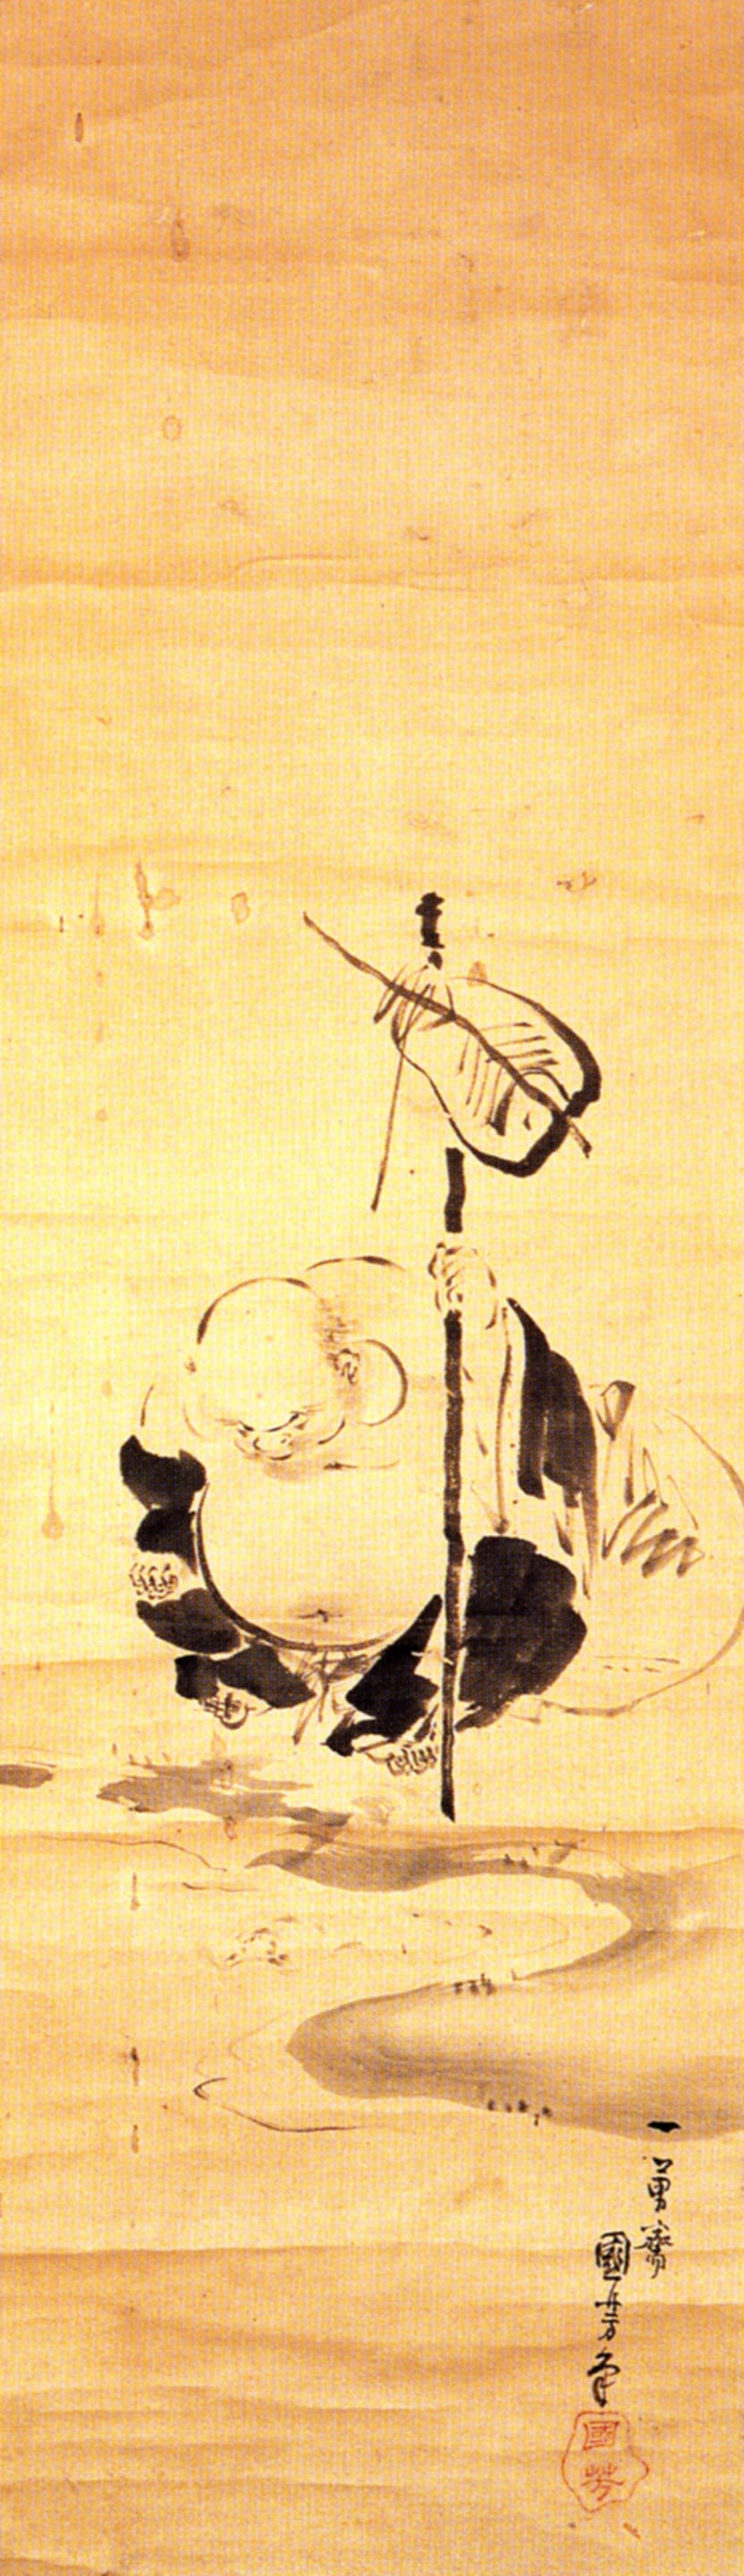 一勇齋
國芳筆
國芳